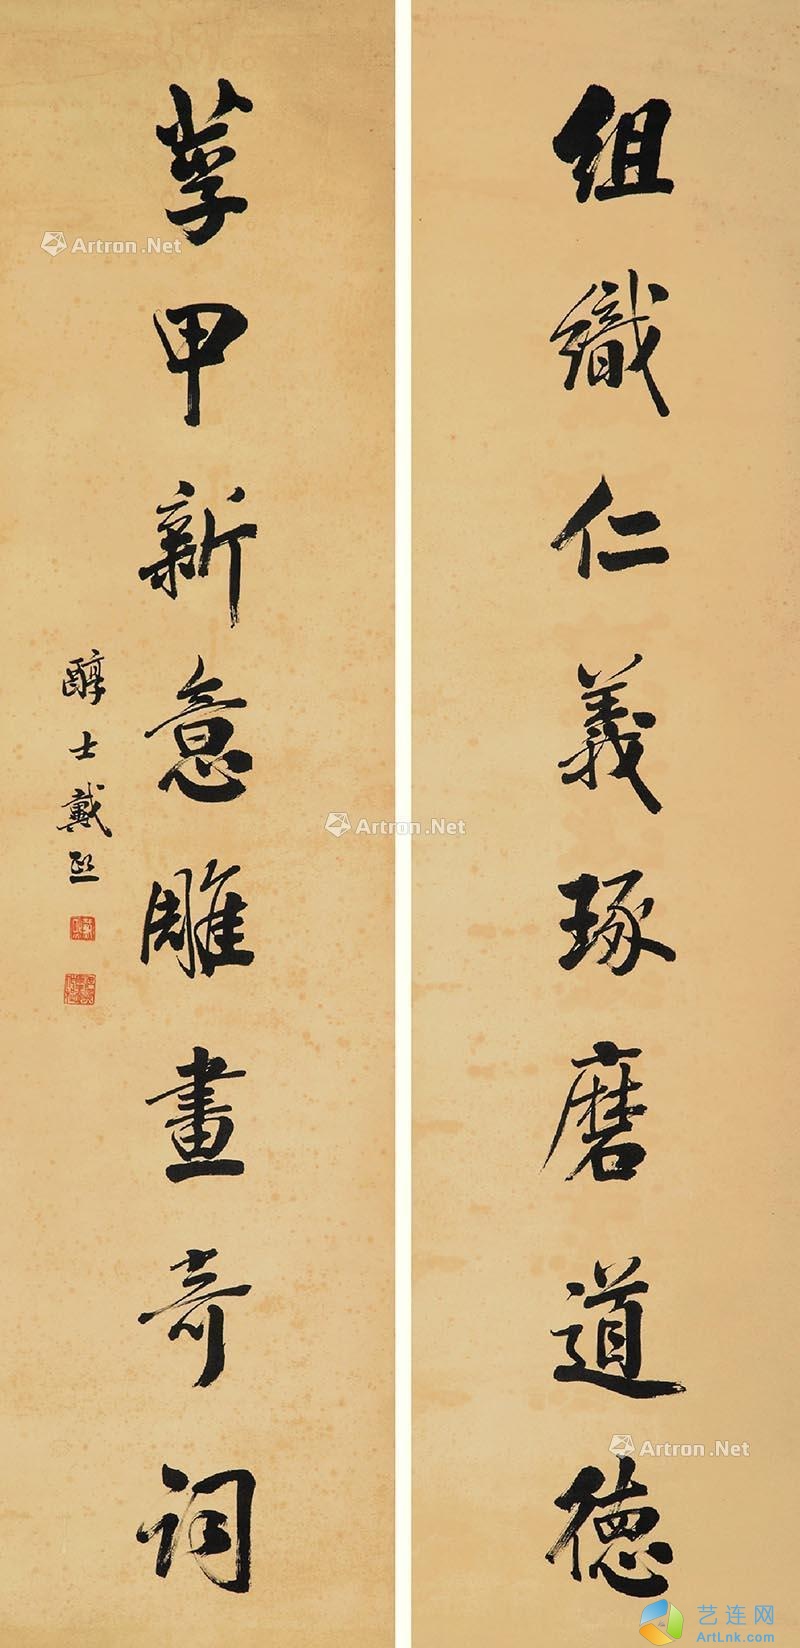 組織仁義琢磨道德
莩甲新意雕畫奇詞
醇士戴熙
Artron.Net
Artron.Net
Artron.Net
艺连网
ArtLnk.com